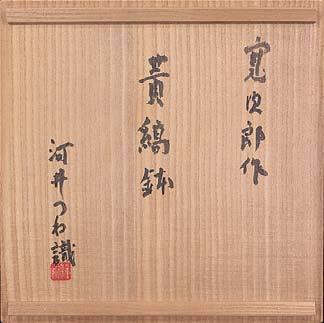 寛次郎作
黄縞鉢
河井つね識